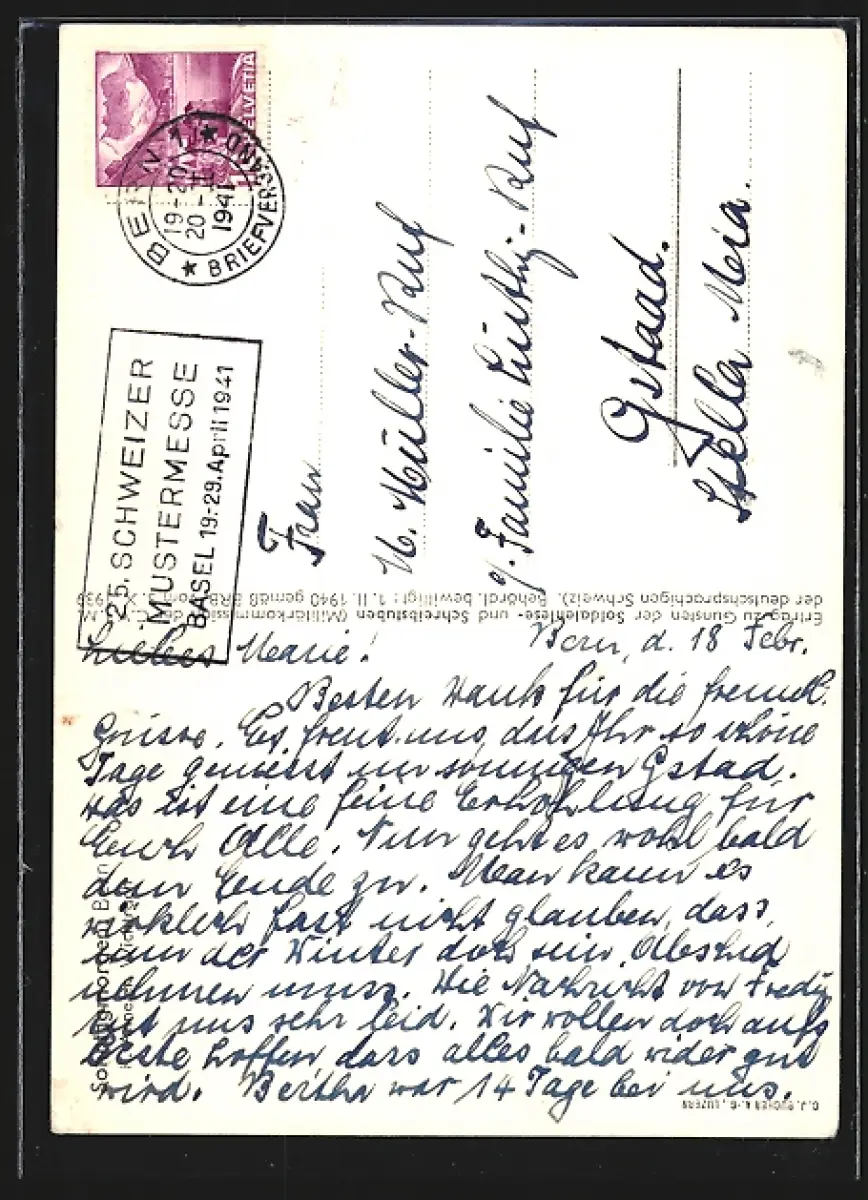 HELVETIA
BERN 1
BRIEFVERSAND
19-20
20.II
1941
25. SCHWEIZER
MUSTERMESSE
BASEL 19.-29. April 1941
Frau
M. Müller-Ruf
Familie Lüthy-Ruf
Gstaad.
Stella Meia.
Ertrag zu Gunsten der Soldatenlese- und Schreibstuben (Militärkommission
der deutschsprachigen Schweiz). Behördl. bewilligt: 1. II. 1940 gemäß BRB. vom X. 1939
Liebes Marie! Bern, d. 18 Febr.
Besten Dank für die freundl.
Grüsse. Es freut uns, dass Ihr so schöne
Tage geniesst im sonnigen Gstad.
Das ist eine feine Erhohlung für
Euch Alle. Nun geht es wohl bald
dem Ende zu. Man kann es
wirklich fast nicht glauben, dass
nun der Winter doch sein Abschid
nehmen muss. Die Nachricht von Fredy
tut uns sehr leid. Wir wollen doch aufs
beste hoffen, dass alles bald wider gut
wird. Bertha war 14 Tage bei uns.
C. J. BUCHER A.-G., LUZERN